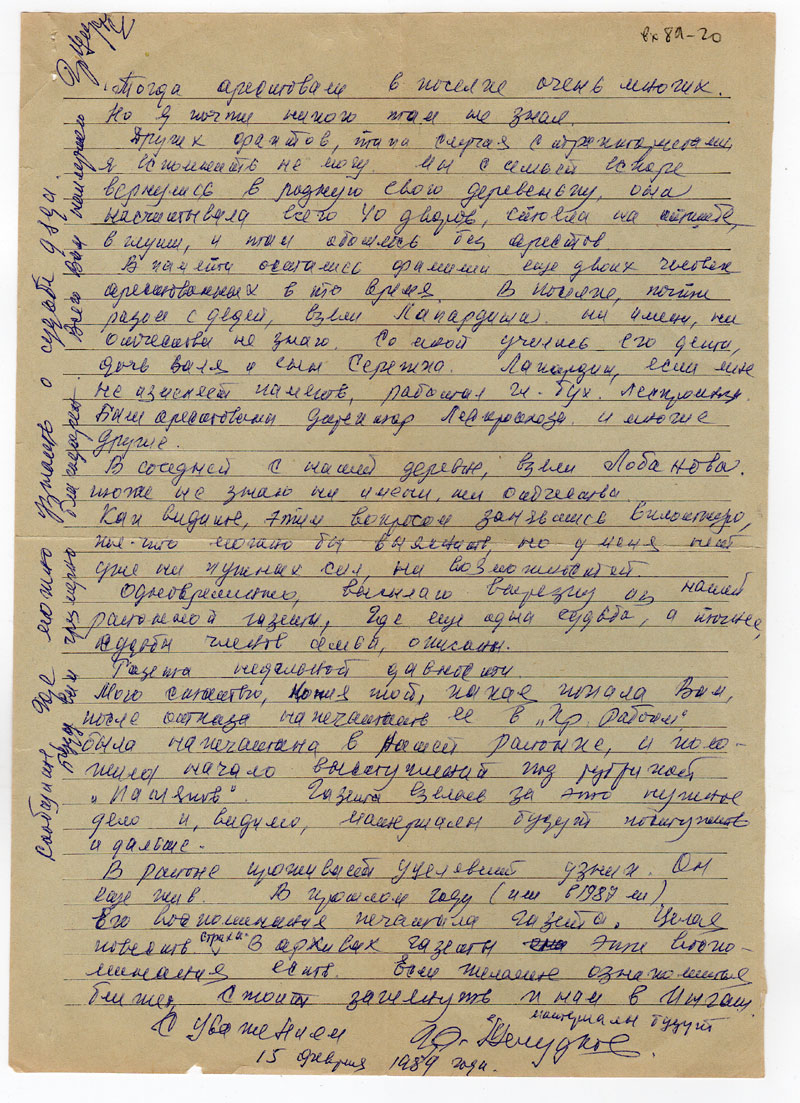 вх 89-20
Тогда арестовали в поселке очень многих.
Но я почти никого там не знал.
Других фактов, типа случая с
я вспомнить не могу. Мы с семьей вскоре
вернулись в родную свою деревеньку, она
насчитывала всего 40 дворов, стояла на отшибе,
в глуши, и там обошлось без арестов.
В памяти остались фамилии еще двоих человек
арестованных в то время. В поселке, почти
разом с дедей, взяли Лапардина. ни имени, ни
отчества не знаю. Со мной учились его дети,
дочь Валя и сын Сережка. Лапардин, если мне
не изменяет память, работал гл. бух. Леспромхоза.
Были арестованы директор Леспромхоза и многие
другие.
В соседней с нашей деревне, взяли Лобанова.
тоже не знаю ни имени, ни отчества.
Как видите, этим вопросом занявшись вплотную,
кое-что можно бы выяснить, но у меня нет
уже ни нужных сил, ни возможностей.
Одновременно, высылаю вырезку из нашей
районной газеты, где еще одна судьба, а точнее,
судьбы членов семьи, описаны.
Газета недельной давности
Моя статья, копия той, какая попала Вам,
после отказа напечатать ее в „Кр. Рабочем"
была напечатана в нашей районке, и поло-
жила начало выступлений под рубрикой
„Память". Газета взялась за это нужное
дело и, видимо, материалы будут поступать
и дальше.
В районе проживает уцелевший узник. Он
еще жив. В прошлом году (или в 1987 м)
его воспоминания печатала газета. Целая
повесть страха. В архивах газеты эти воспо-
минания есть. Если желаете ознакомиться
ближе, стоит заглянуть к нам в Ингаш.
материалы будут
С уважением
15 февраля 1989 года.
Сообщите где можно узнать о судьбе дяди.
Буду Вам чрезмерно благодарен. Всего Вам наилучшего